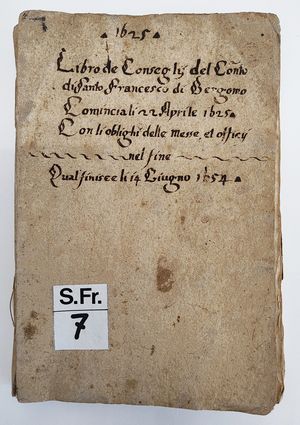 1625
Libro de Consegly del Conto
di Santo Francesco di Bergomo
Cominciali 22 Aprile 1625
Con li oblighi delle messe, et officy
nel fine
Qual finisce li 14 Giugno 1654
S.Fr.
7